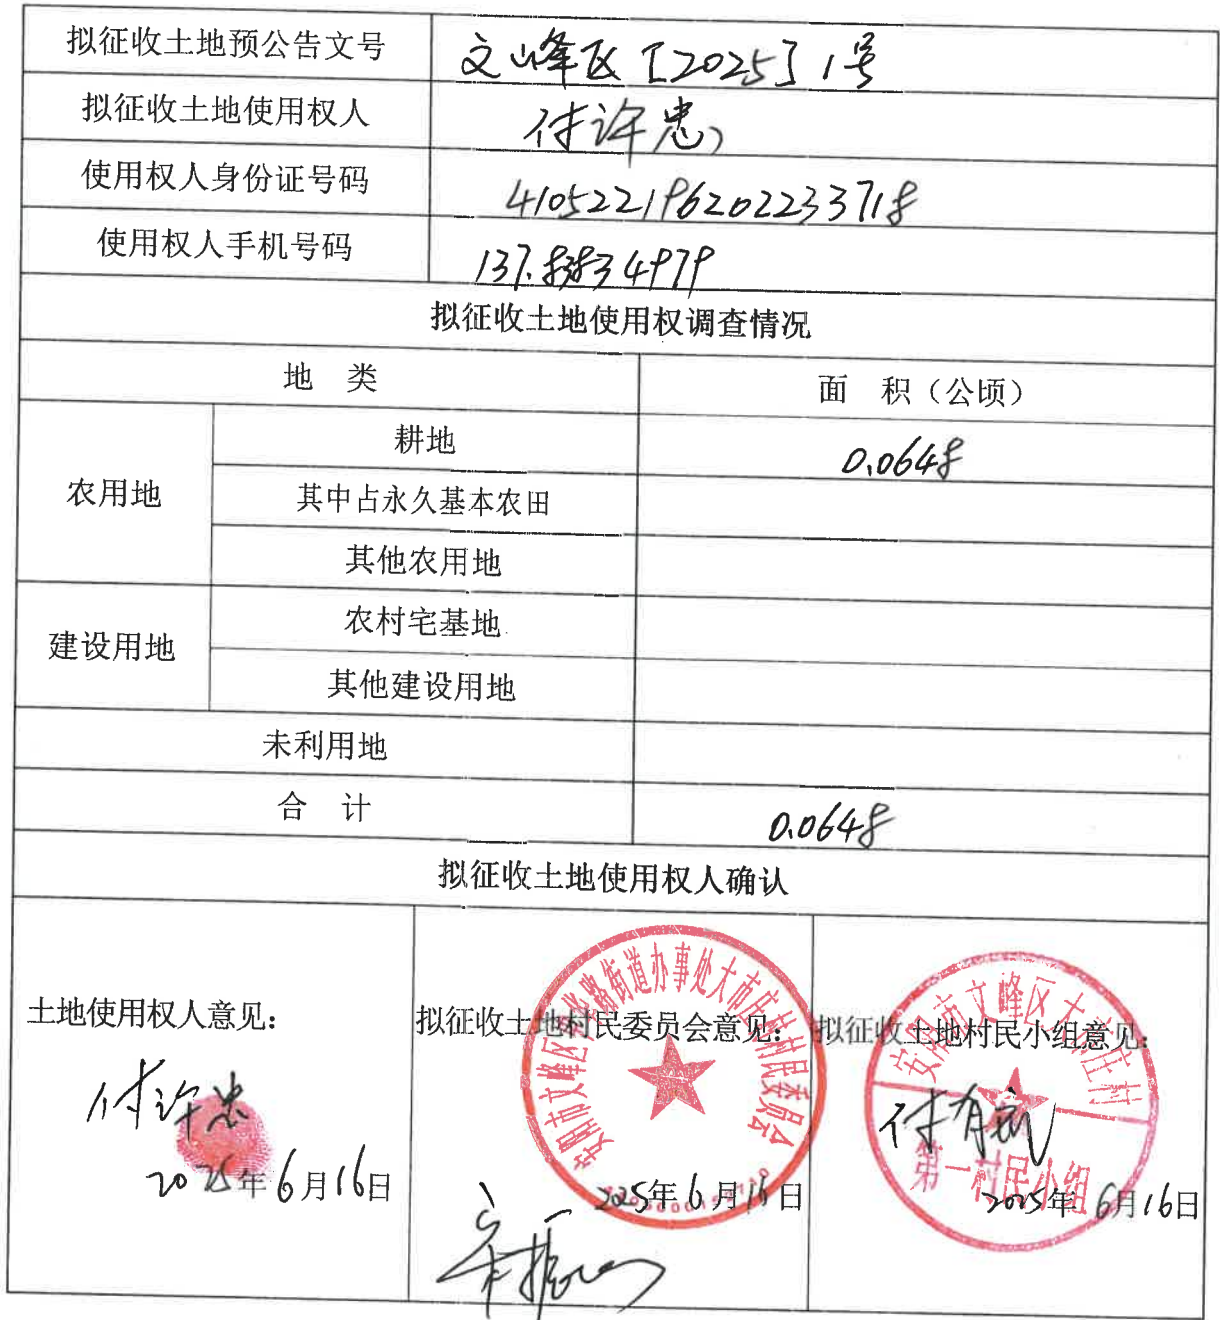 拟征收土地预公告文号 文峰区[2025]1号
拟征收土地使用权人 付许忠
使用权人身份证号码 410522196202233718
使用权人手机号码 137.83834979
拟征收土地使用权调查情况
地 类 面 积（公顷）
农用地 耕地 0.0648
其中占永久基本农田
其他农用地
建设用地 农村宅基地
其他建设用地
未利用地
合 计 0.0648
拟征收土地使用权人确认
土地使用权人意见：
付许忠
2025年6月16日
拟征收土地村民委员会意见：
安阳市文峰区 街道办事处大市庄村村民委员会
2025年6月16日
拟征收土地村民小组意见：
安阳市文峰区大市庄村
第一村民小组
付有
2025年6月16日